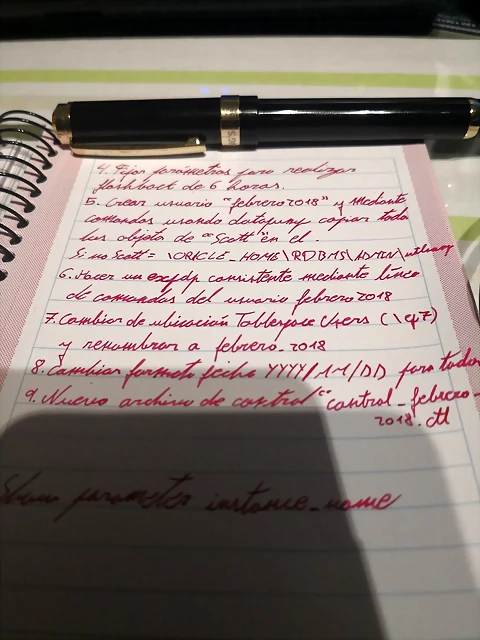 4. Fijar parámetros para realizar
flashback de 6 horas.
5. Crear usuario "febrero2018" y mediante
comandos usando datapump copiar todos
los objetos de "Scott" en el.
Si no Scott = \ORACLE_HOME\RDBMS\ADMIN\
6. Hacer un expdp consistente mediante línea
de comandos del usuario febrero2018
7. Cambiar de ubicación Tablespace Users (\ej7)
y renombrar a febrero_2018
8. Cambiar formato fecha YYYY/MM/DD para todos
9. Nuevo archivo de control "control_febrero_
2018.ctl
Show parameter instance_name